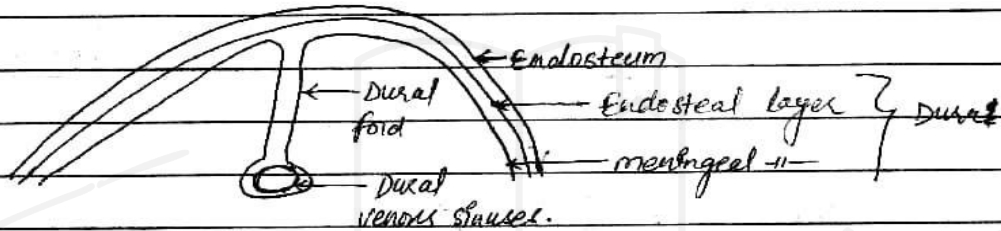 Endosteum
Dural
fold
Endosteal layer
Dural
meningeal -11-
Dural
venous sinuses.